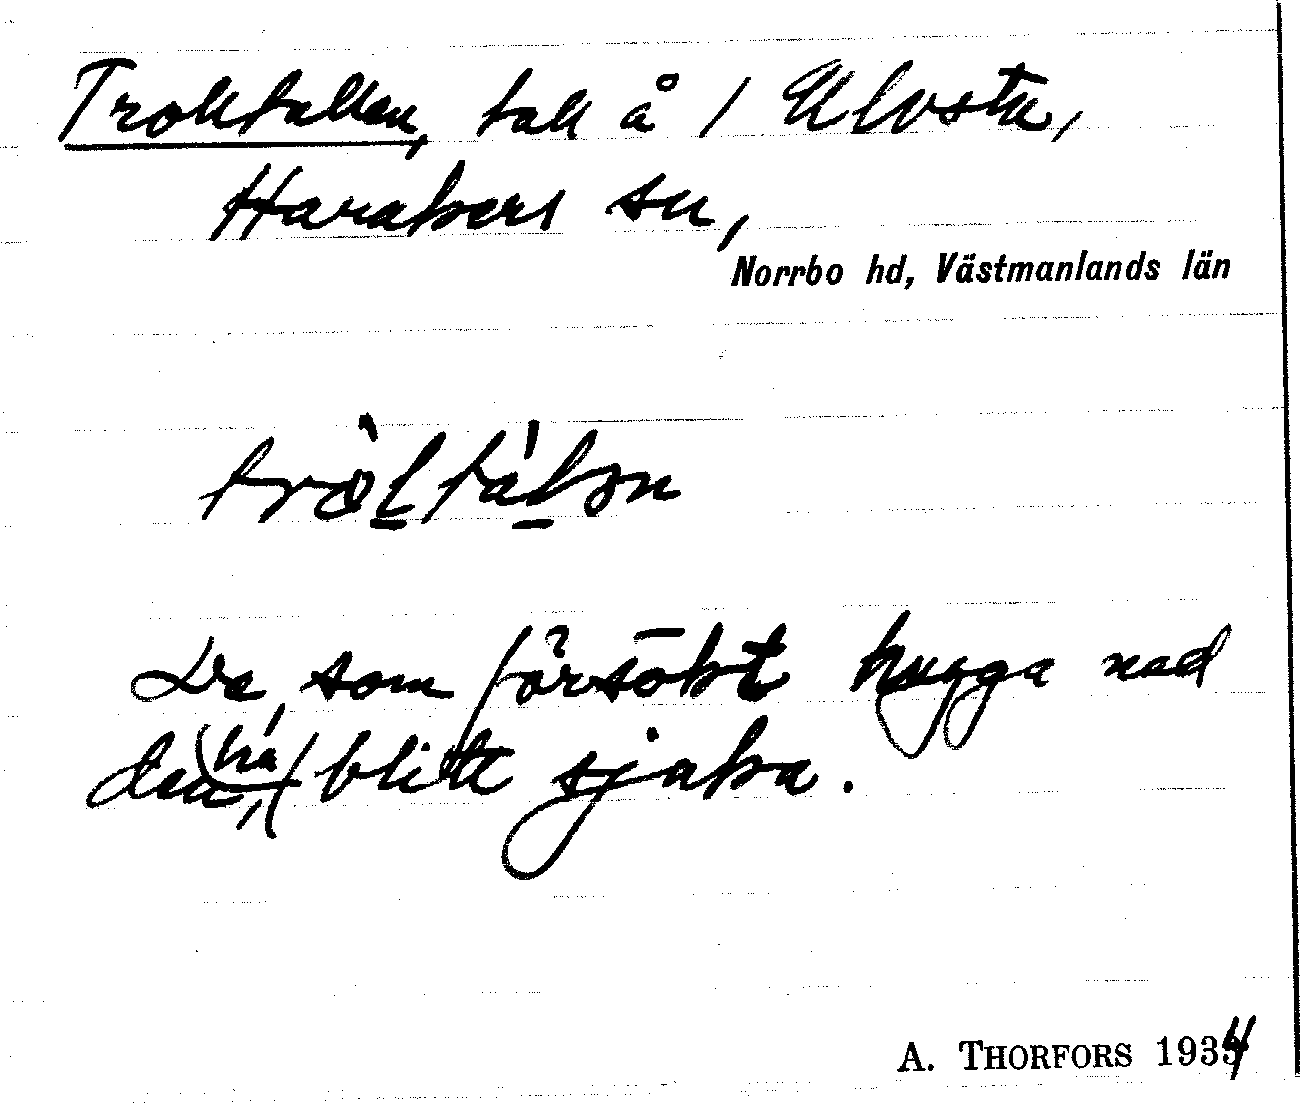 Trolltallen, tall å / Ulvsta,
Harakers sn,
Norrbo hd, Västmanlands län
De som försökt hugga ned
den, (ha) blitt sjuka.
A. THORFORS 1934